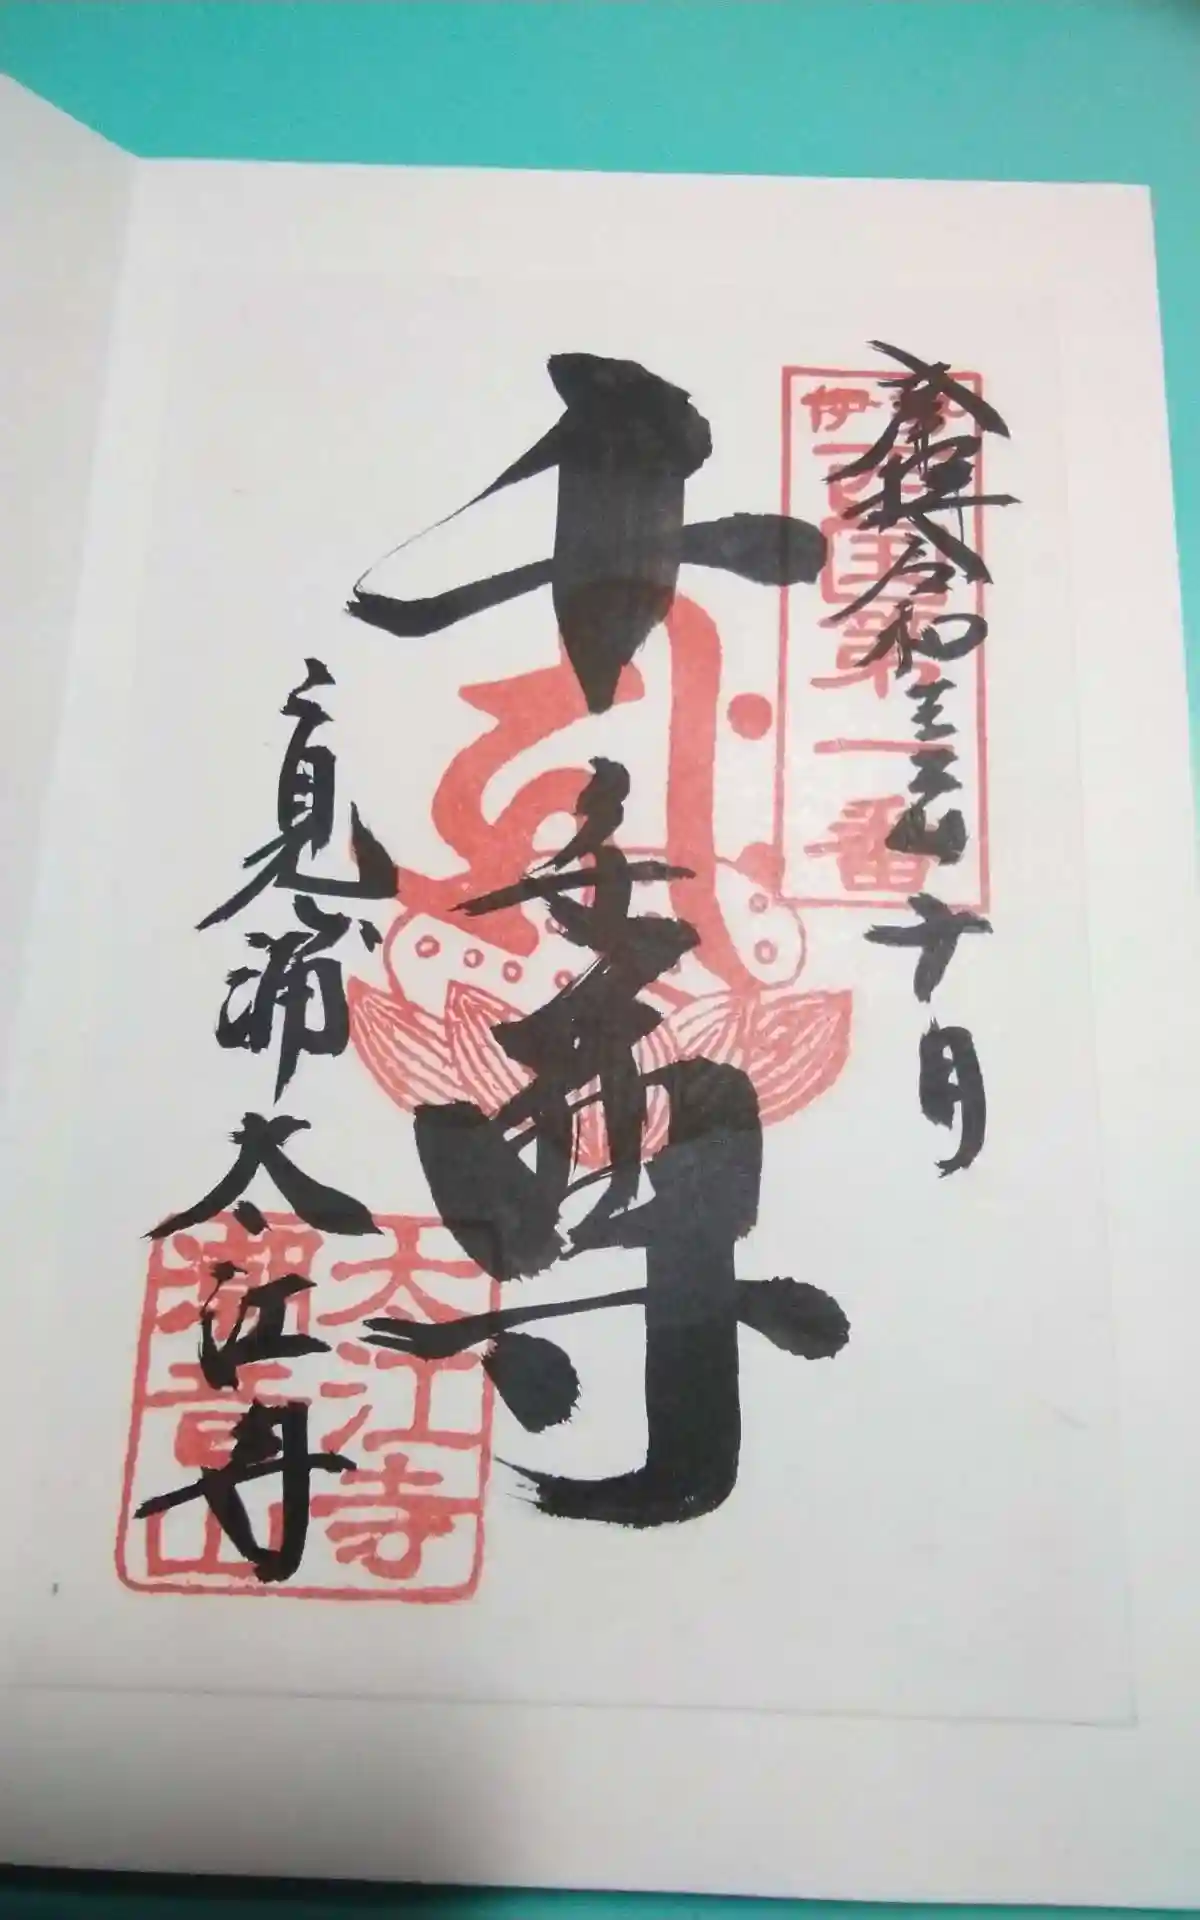 奉拝 令和三年十月
伊勢
西国第一番
千手尊
二見浦 太江寺
太江寺
潮音山